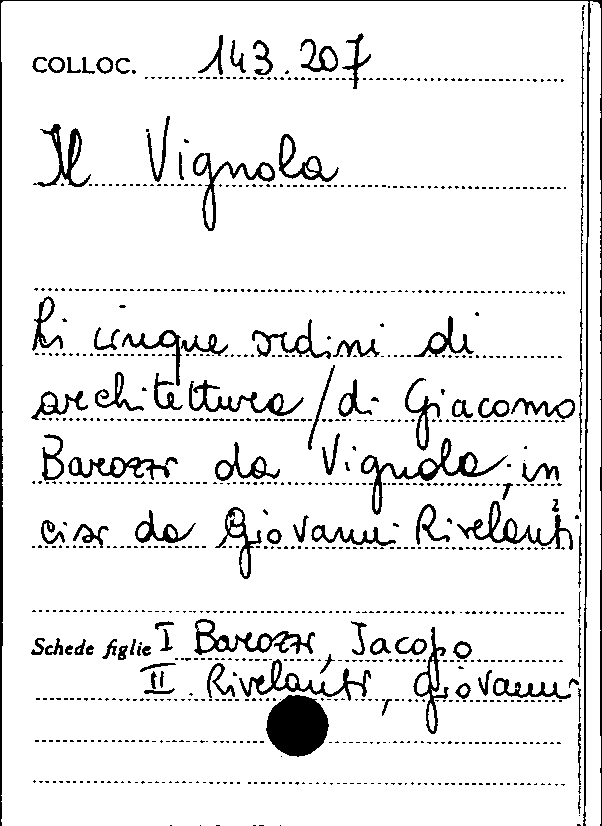 COLLOC. 143.207
Il Vignola
Li cinque ordini di
architettura / di Giacomo
Barozzi da Vignola; in
cisi da Giovanni Rivelanti
2
Schede figlie I Barozzi, Jacopo
II. Rivelanti, Giovanni